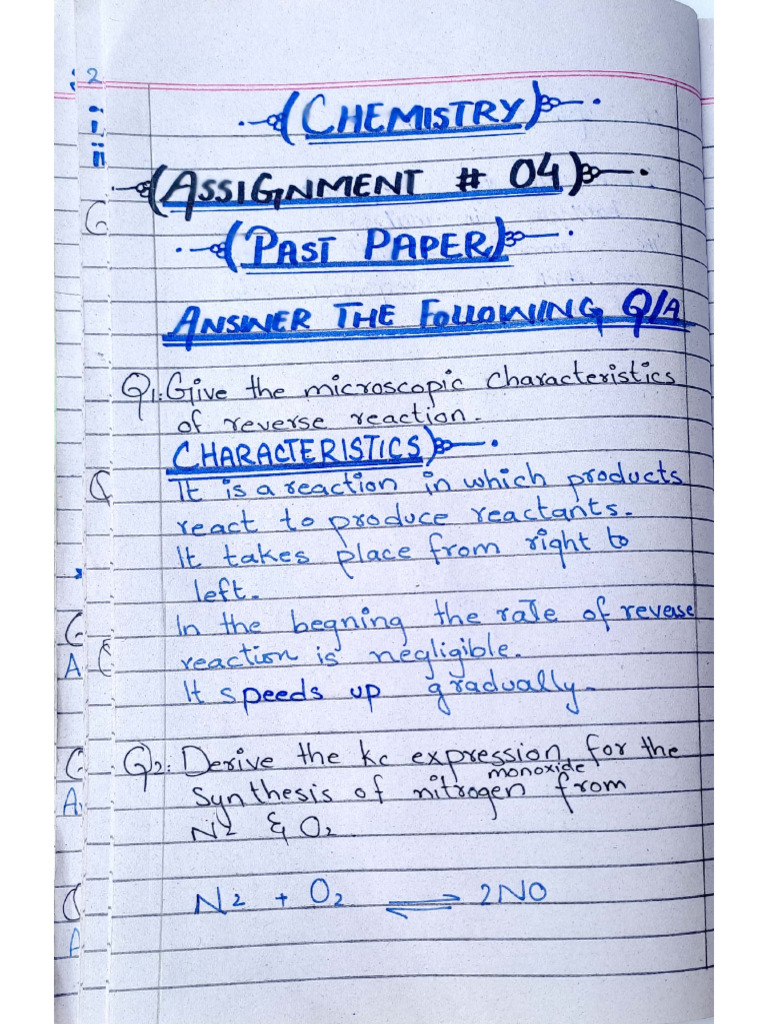 2
i
ii
(CHEMISTRY)
(ASSIGNMENT # 04)
(PAST PAPER)
ANSWER THE FOLLOWING Q/A
Q1: Give the microscopic characteristics
of reverse reaction.
CHARACTERISTICS)
It is a reaction in which products
react to produce reactants.
It takes place from right to
left.
In the begning the rate of reverse
reaction is negligible.
It speeds up gradually.
Q2: Derive the kc expression for the
synthesis of nitrogen monoxide from
N2 & O2.
N2 + O2 ⇌ 2NO
A
A
A